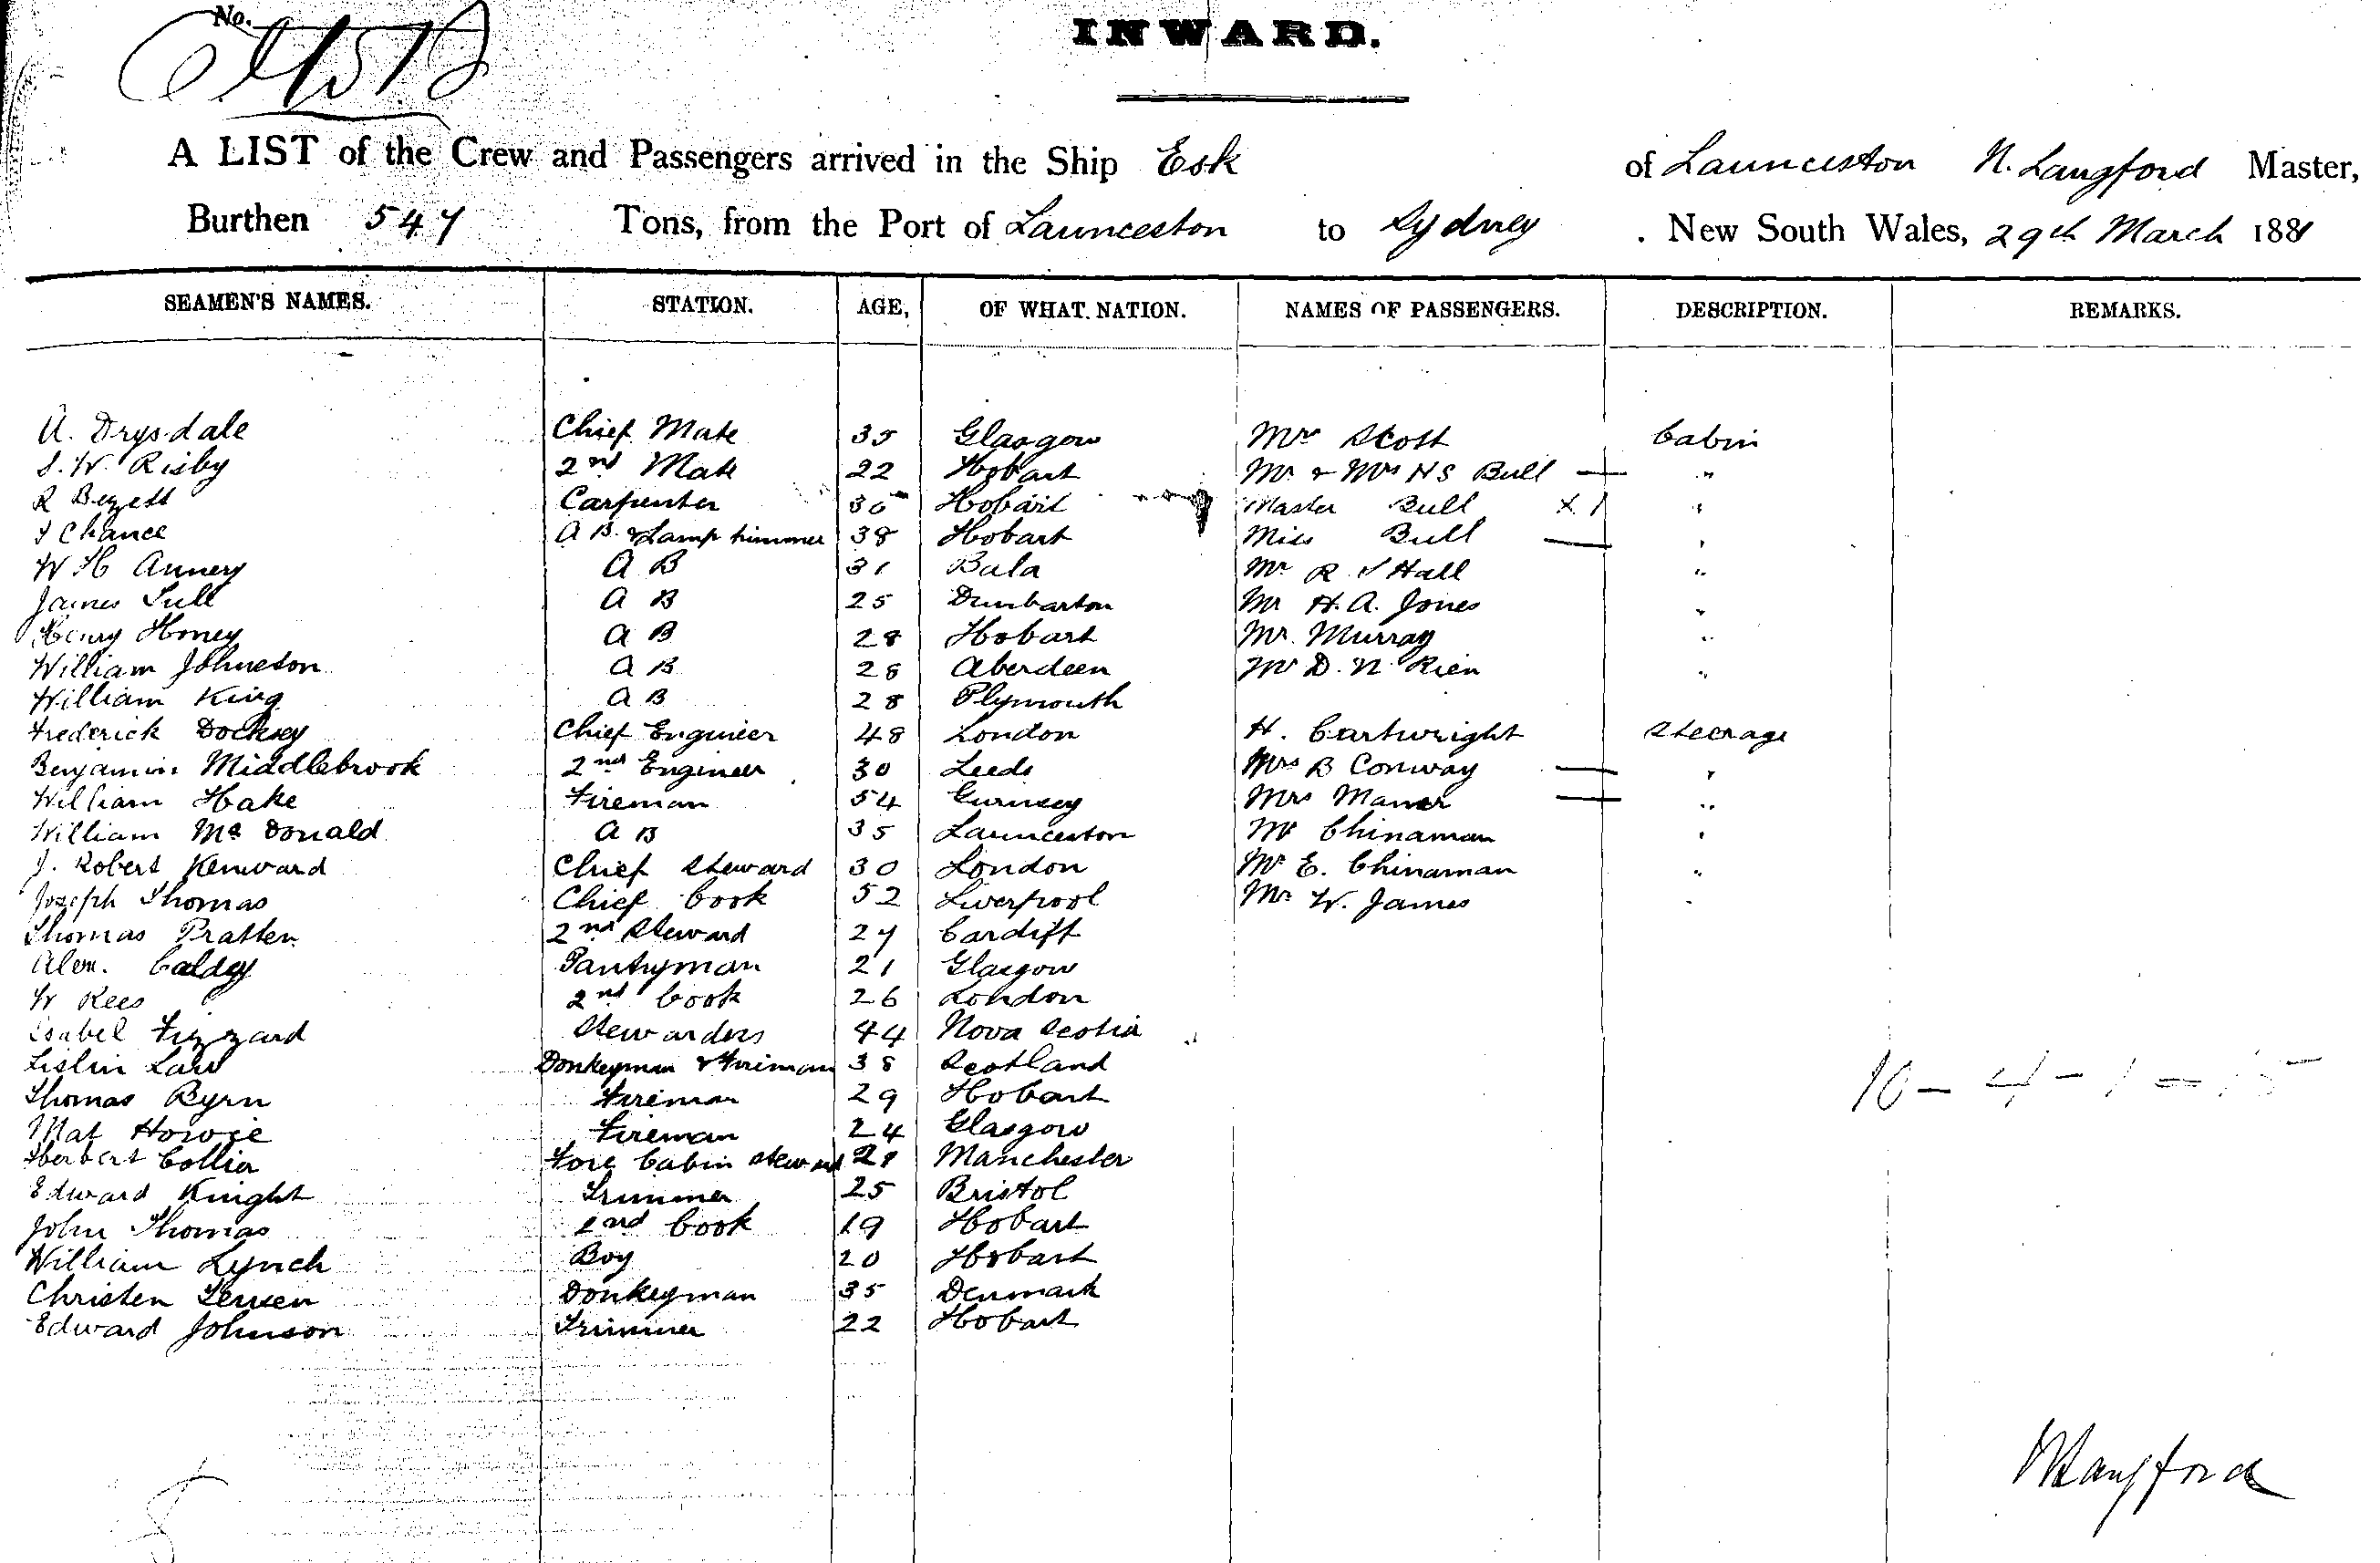 No.
INWARD.
A LIST of the Crew and Passengers arrived in the Ship Esk of Launceston N. Langford Master,
Burthen 547 Tons, from the Port of Launceston to Sydney . New South Wales, 29th March 1881
SEAMEN'S NAMES. STATION. AGE, OF WHAT NATION. NAMES OF PASSENGERS. DESCRIPTION. REMARKS.
A. Drysdale Chief Mate 35 Glasgow Mr Scott Cabin
S. W. Risby 2nd Mate 22 Hobart Mr. & Mrs H S Bull "
R Bezett Carpenter 30 Hobart Master Bull X 1 "
Chance A B. & Lamp trimmer 38 Hobart Miss Bull "
W H Annery A B 31 Bala Mr R S Hall "
James Sull A B 25 Dunbarton Mr H. A. Jones "
Henry Honey A B 28 Hobart Mr. Murray "
William Johnston A B 28 Aberdeen Mr D. N. Rien "
William King A B 28 Plymouth
Frederick Docksey Chief Engineer 48 London H. Cartwright Steerage
Benjamin Middlebrook 2nd Engineer 30 Leeds Mrs B Conway "
William Hake Fireman 54 Gurnsey Mrs Maner "
William McDonald A B 35 Launceston Mr Chinaman "
J. Robert Kenward Chief Steward 30 London Mr E. Chinaman "
Joseph Thomas Chief Cook 52 Liverpool Mr W. James "
Thomas Pratten 2nd Steward 27 Cardiff
Alex. Caldey Pantryman 21 Glasgow
W Rees 2nd Cook 26 London
Isabel Fizzard Stewardess 44 Nova Scotia
Lislin Law Donkeyman & Fireman 38 Scotland
Thomas Byrn Fireman 29 Hobart
Mat Howie Fireman 24 Glasgow
Herbert Collier Fore Cabin Steward 28 Manchester
Edward Knight Trimmer 25 Bristol
John Thomas 2nd Cook 19 Hobart
William Lynch Boy 20 Hobart
Christen Jensen Donkeyman 35 Denmark
Edward Johnson Trimmer 22 Hobart
10 - 4 - 1 = 15
N Langford